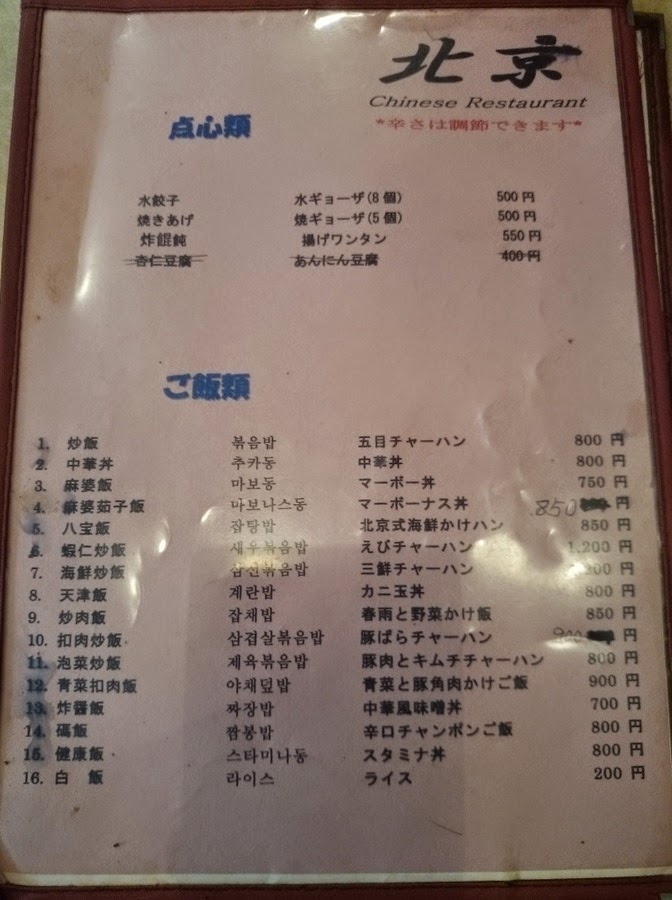 北京
Chinese Restaurant
*辛さは調節できます*
点心類
水餃子 水ギョーザ(8個) 500円
焼きあげ 焼ギョーザ(5個) 500円
炸餛飩 揚げワンタン 550円
杏仁豆腐 あんにん豆腐 400円
ご飯類
1. 炒飯 볶음밥 五目チャーハン 800円
2. 中華丼 추카동 中華丼 800円
3. 麻婆飯 마보동 マーボー丼 750円
4. 麻婆茄子飯 마보나스동 マーボーナス丼 850 円
5. 八宝飯 잡탕밥 北京式海鮮かけハン 850円
6. 蝦仁炒飯 새우볶음밥 えびチャーハン 1,200円
7. 海鮮炒飯 삼선볶음밥 三鮮チャーハン 円
8. 天津飯 계란밥 カニ玉丼 800円
9. 炒肉飯 잡채밥 春雨と野菜かけ飯 850円
10. 扣肉炒飯 삼겹살볶음밥 豚ばらチャーハン 900 円
11. 泡菜炒飯 제육볶음밥 豚肉とキムチチャーハン 800円
12. 青菜扣肉飯 야채덮밥 青菜と豚角肉かけご飯 900円
13. 炸醤飯 짜장밥 中華風味噌丼 700円
14. 碼飯 짬봉밥 辛口チャンポンご飯 800円
15. 健康飯 스타미나동 スタミナ丼 800円
16. 白 飯 라이스 ライス 200円